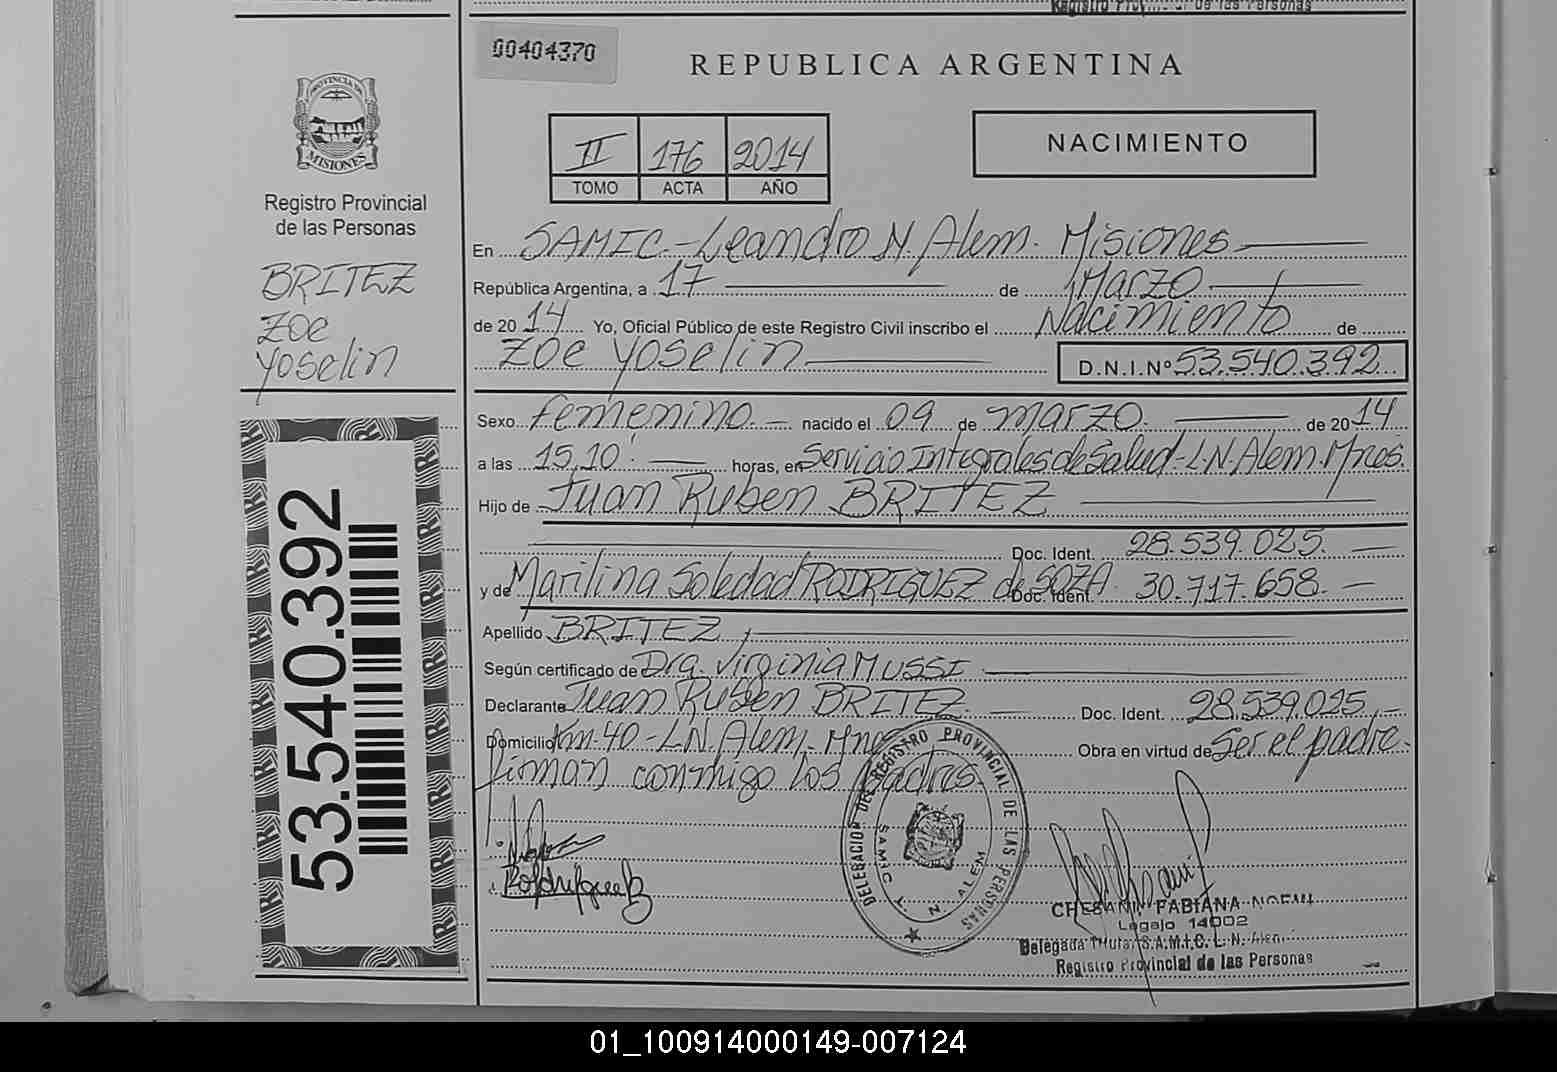 Registro Provincial de las Personas
00404370
REPUBLICA ARGENTINA
PROVINCIA DE
MISIONES
Registro Provincial
de las Personas
BRITEZ
Zoe
Yoselin
II 176 2014
TOMO ACTA AÑO
NACIMIENTO
En SAMIC.-Leandro N. Alem. Misiones
República Argentina, a 17 de Marzo
de 2014 Yo, Oficial Público de este Registro Civil inscribo el Nacimiento de
Zoe Yoselin D.N.I.Nº 53.540.392
Sexo Femenino. nacido el 09 de marzo. de 2014
a las 15,10' horas, en Servicio Integrales de Salud-L.N.Alem.Mnes.
Hijo de Juan Ruben BRITEZ
Doc. Ident. 28.539.025.
y de Marilina Soledad RODRIGUEZ de SOZA. Doc. Ident. 30.717.658.
Apellido BRITEZ
Según certificado de Dra. Virginia MUSSI
Declarante Juan Ruben BRITEZ. Doc. Ident. 28.539.025.
Domicilio Km-40-L.N.Alem. Mnes Obra en virtud de Ser el padre.
firman conmigo los padres.
53.540.392
DELEGACION DEL REGISTRO PROVINCIAL DE LAS PERSONAS
SAMIC L. N. ALEM
Rodriguez
CHESANI, FABIANA NOEMI
Legajo 14002
Delegada Titular S.A.M.I.C. L. N. Alem
Registro Provincial de las Personas
01_100914000149-007124